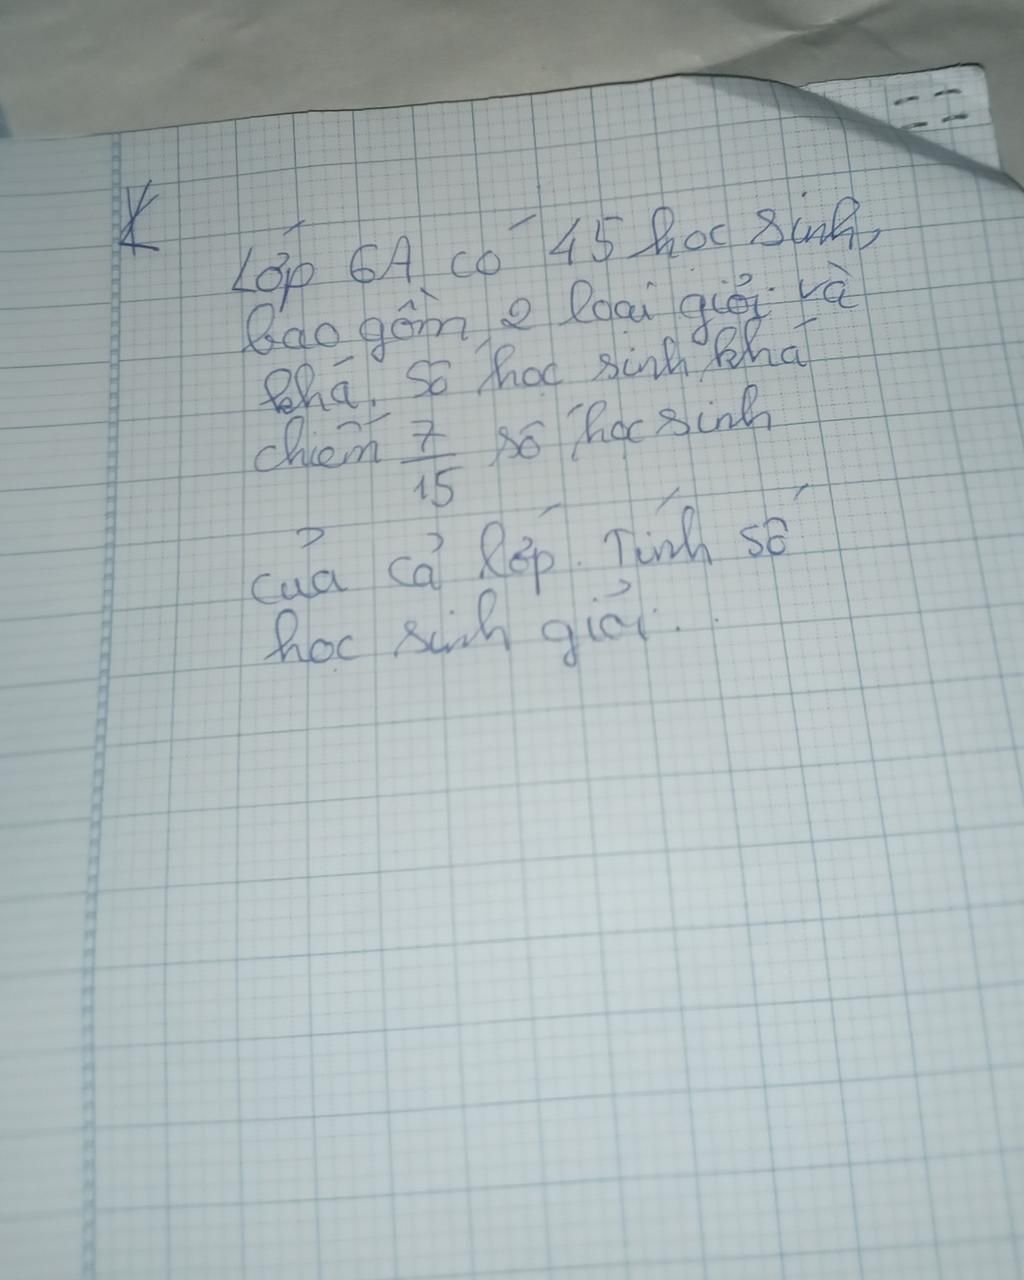 Lớp 6A có 45 học sinh,
bao gồm 2 loại giỏi và
khá. Số học sinh khá
chiếm 7/15 số học sinh
của cả lớp. Tính số
học sinh giỏi.